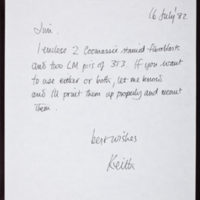 16 July '82
Jim.
I enclose 2 Coomassie stained fibroblasts
and two LM pics of 3T3. If you want
to use either or both, let me know
and I'll print them up properly and mount
them.
best wishes
Keith